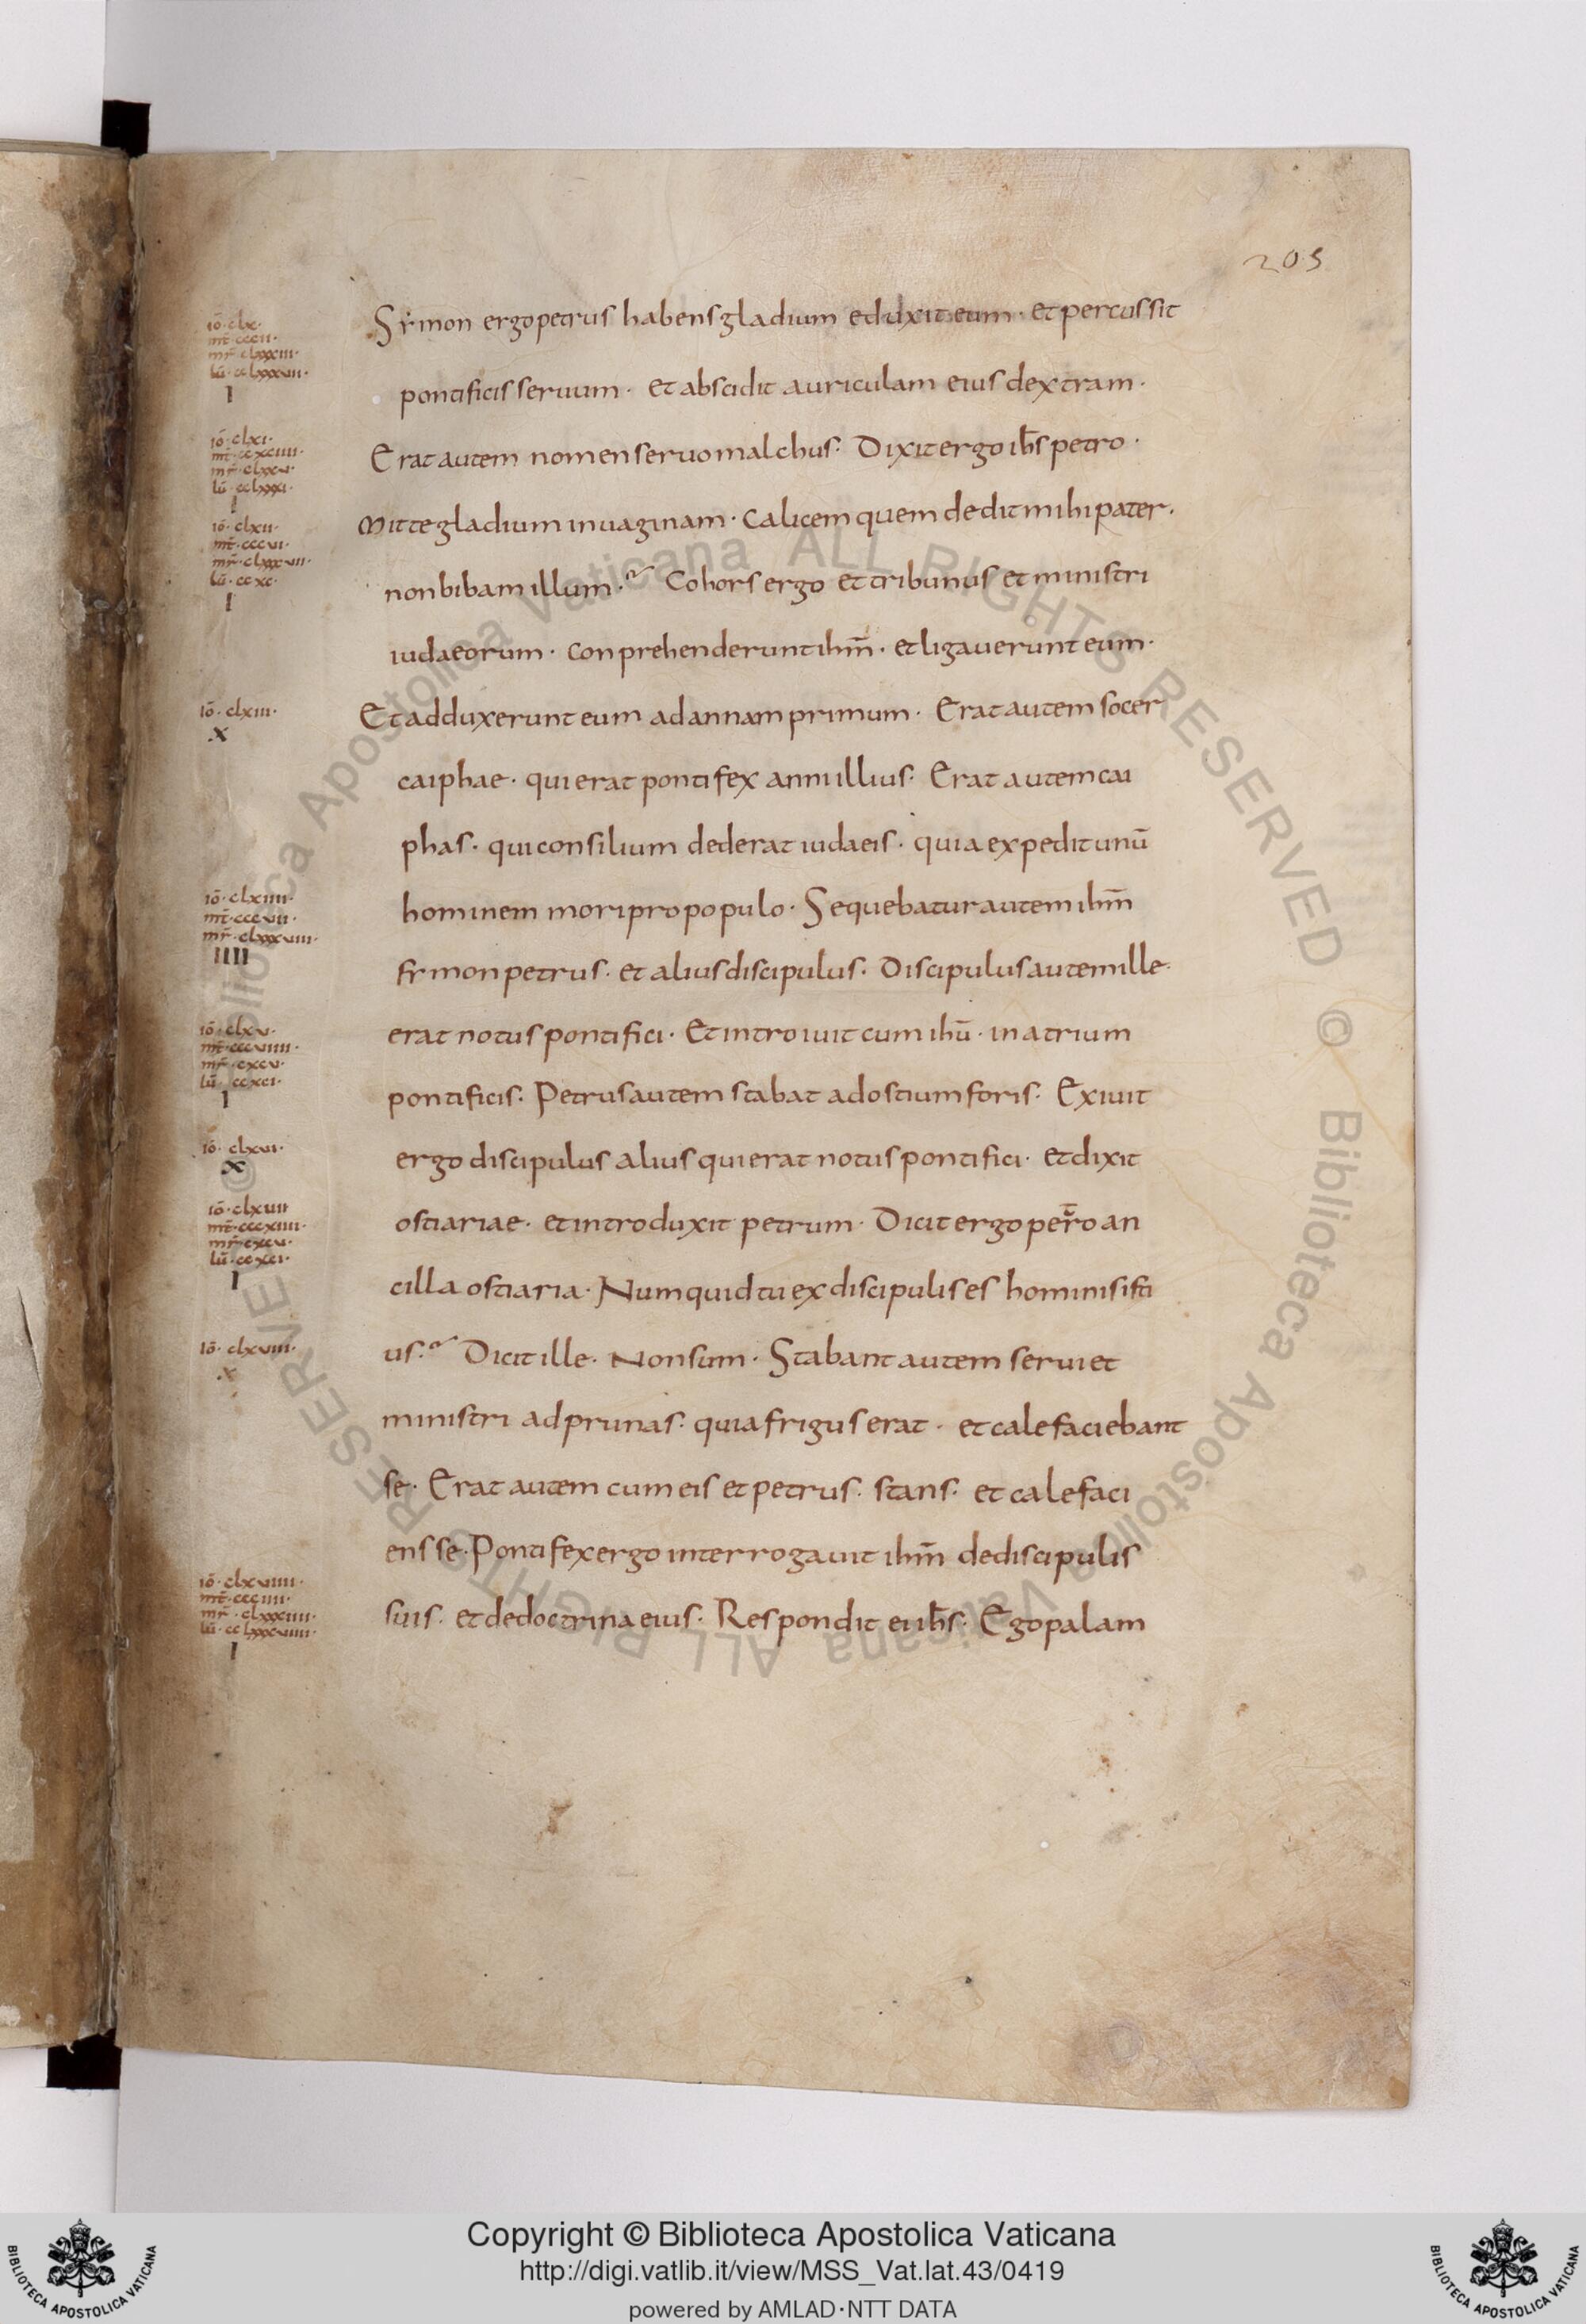 205
Symon ergo petrus habens gladium eduxit eum · et percussit
pontificis seruum · et abscidit auriculam eius dextram ·
Erat autem nomen seruo malchus · Dixit ergo ih̅s petro ·
Mitte gladium in uaginam · Calicem quem dedit mihi pater ·
non bibam illum · Cohors ergo et tribunus et ministri
iudaeorum · conprehenderunt ihm̅ · et ligauerunt eum ·
Et adduxerunt eum ad annam primum · Erat autem socer
caiphae · qui erat pontifex anni illius · Erat autem cai
phas · qui consilium dederat iudaeis · quia expedit unū
hominem mori pro populo · Sequebatur autem ihm̅
symon petrus · et alius discipulus · Discipulus autem ille ·
erat notus pontifici · Et introiuit cum ihū · in atrium
pontificis · Petrus autem stabat ad ostium foris · Exiuit
ergo discipulus alius qui erat notus pontifici · et dixit
ostiariae · et introduxit petrum · Dicit ergo petro an
cilla ostiaria · Numquid tu ex discipulis es hominis isti
us · Dicit ille · Non sum · Stabant autem serui et
ministri ad prunas · quia frigus erat · et calefaciebant
se · Erat autem cum eis et petrus · stans · et calefaci
ens se · Pontifex ergo interrogauit ihm̅ de discipulis
suis · et de doctrina eius · Respondit ei ih̅s · Ego palam
iō · clx ·
mt̄ · cccii ·
mr̄ · clxxxiii ·
lū · cclxxxvii ·
I
iō · clxi ·
I
iō · clxii ·
mt̄ · cccvi ·
mr̄ · clxxxvii ·
lū · ccxc ·
I
iō · clxiii ·
X
iō · clxiiii ·
mt̄ · cccvii ·
mr̄ · clxxxviii ·
IIII
iō · clxv ·
mr̄ · cxcv ·
lū · ccxci ·
I
iō · clxvi ·
X
iō · clxvii
mt̄ · cccxiiii ·
mr̄ · cxcv ·
lū · ccxci ·
I
iō · clxviii ·
X
iō · clxviiii ·
mt̄ · ccciiii ·
mr̄ · clxxxiiii ·
lū · cclxxxviiii ·
I
© Biblioteca Apostolica Vaticana ALL RIGHTS RESERVED © Biblioteca Apostolica Vaticana ALL RIGHTS RESERVED
Copyright © Biblioteca Apostolica Vaticana
http://digi.vatlib.it/view/MSS_Vat.lat.43/0419
powered by AMLAD·NTT DATA
BIBLIOTECA APOSTOLICA VATICANA
BIBLIOTECA APOSTOLICA VATICANA